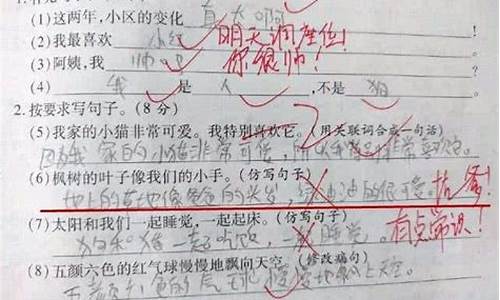 (1)这两年,小区的变化 真大啊
(2)我最喜欢 小红 明天调座位!
(3)阿姨,我 帅吧 你很帅!
(4) 我 是 人 ,不是 狗
2.按要求写句子。(8分)
(5)我家的小猫非常可爱。我特别喜欢它。(用关联词合成一句话)
因为我家的小猫非常可爱,所以我 非常喜欢它。
(6)枫树的叶子像我们的小手。(仿写句子)
地上的草地像爸爸的头发,绿油油的很可爱。
(7)太阳和我们一起睡觉,一起起床。(仿写句子) 有点常识!
狗和猪一起吃饭,一起睡觉。
(8)五颜六色的红气球慢慢地飘向天空。(修改病句)
五颜六色的气球慢慢地飘上天空。